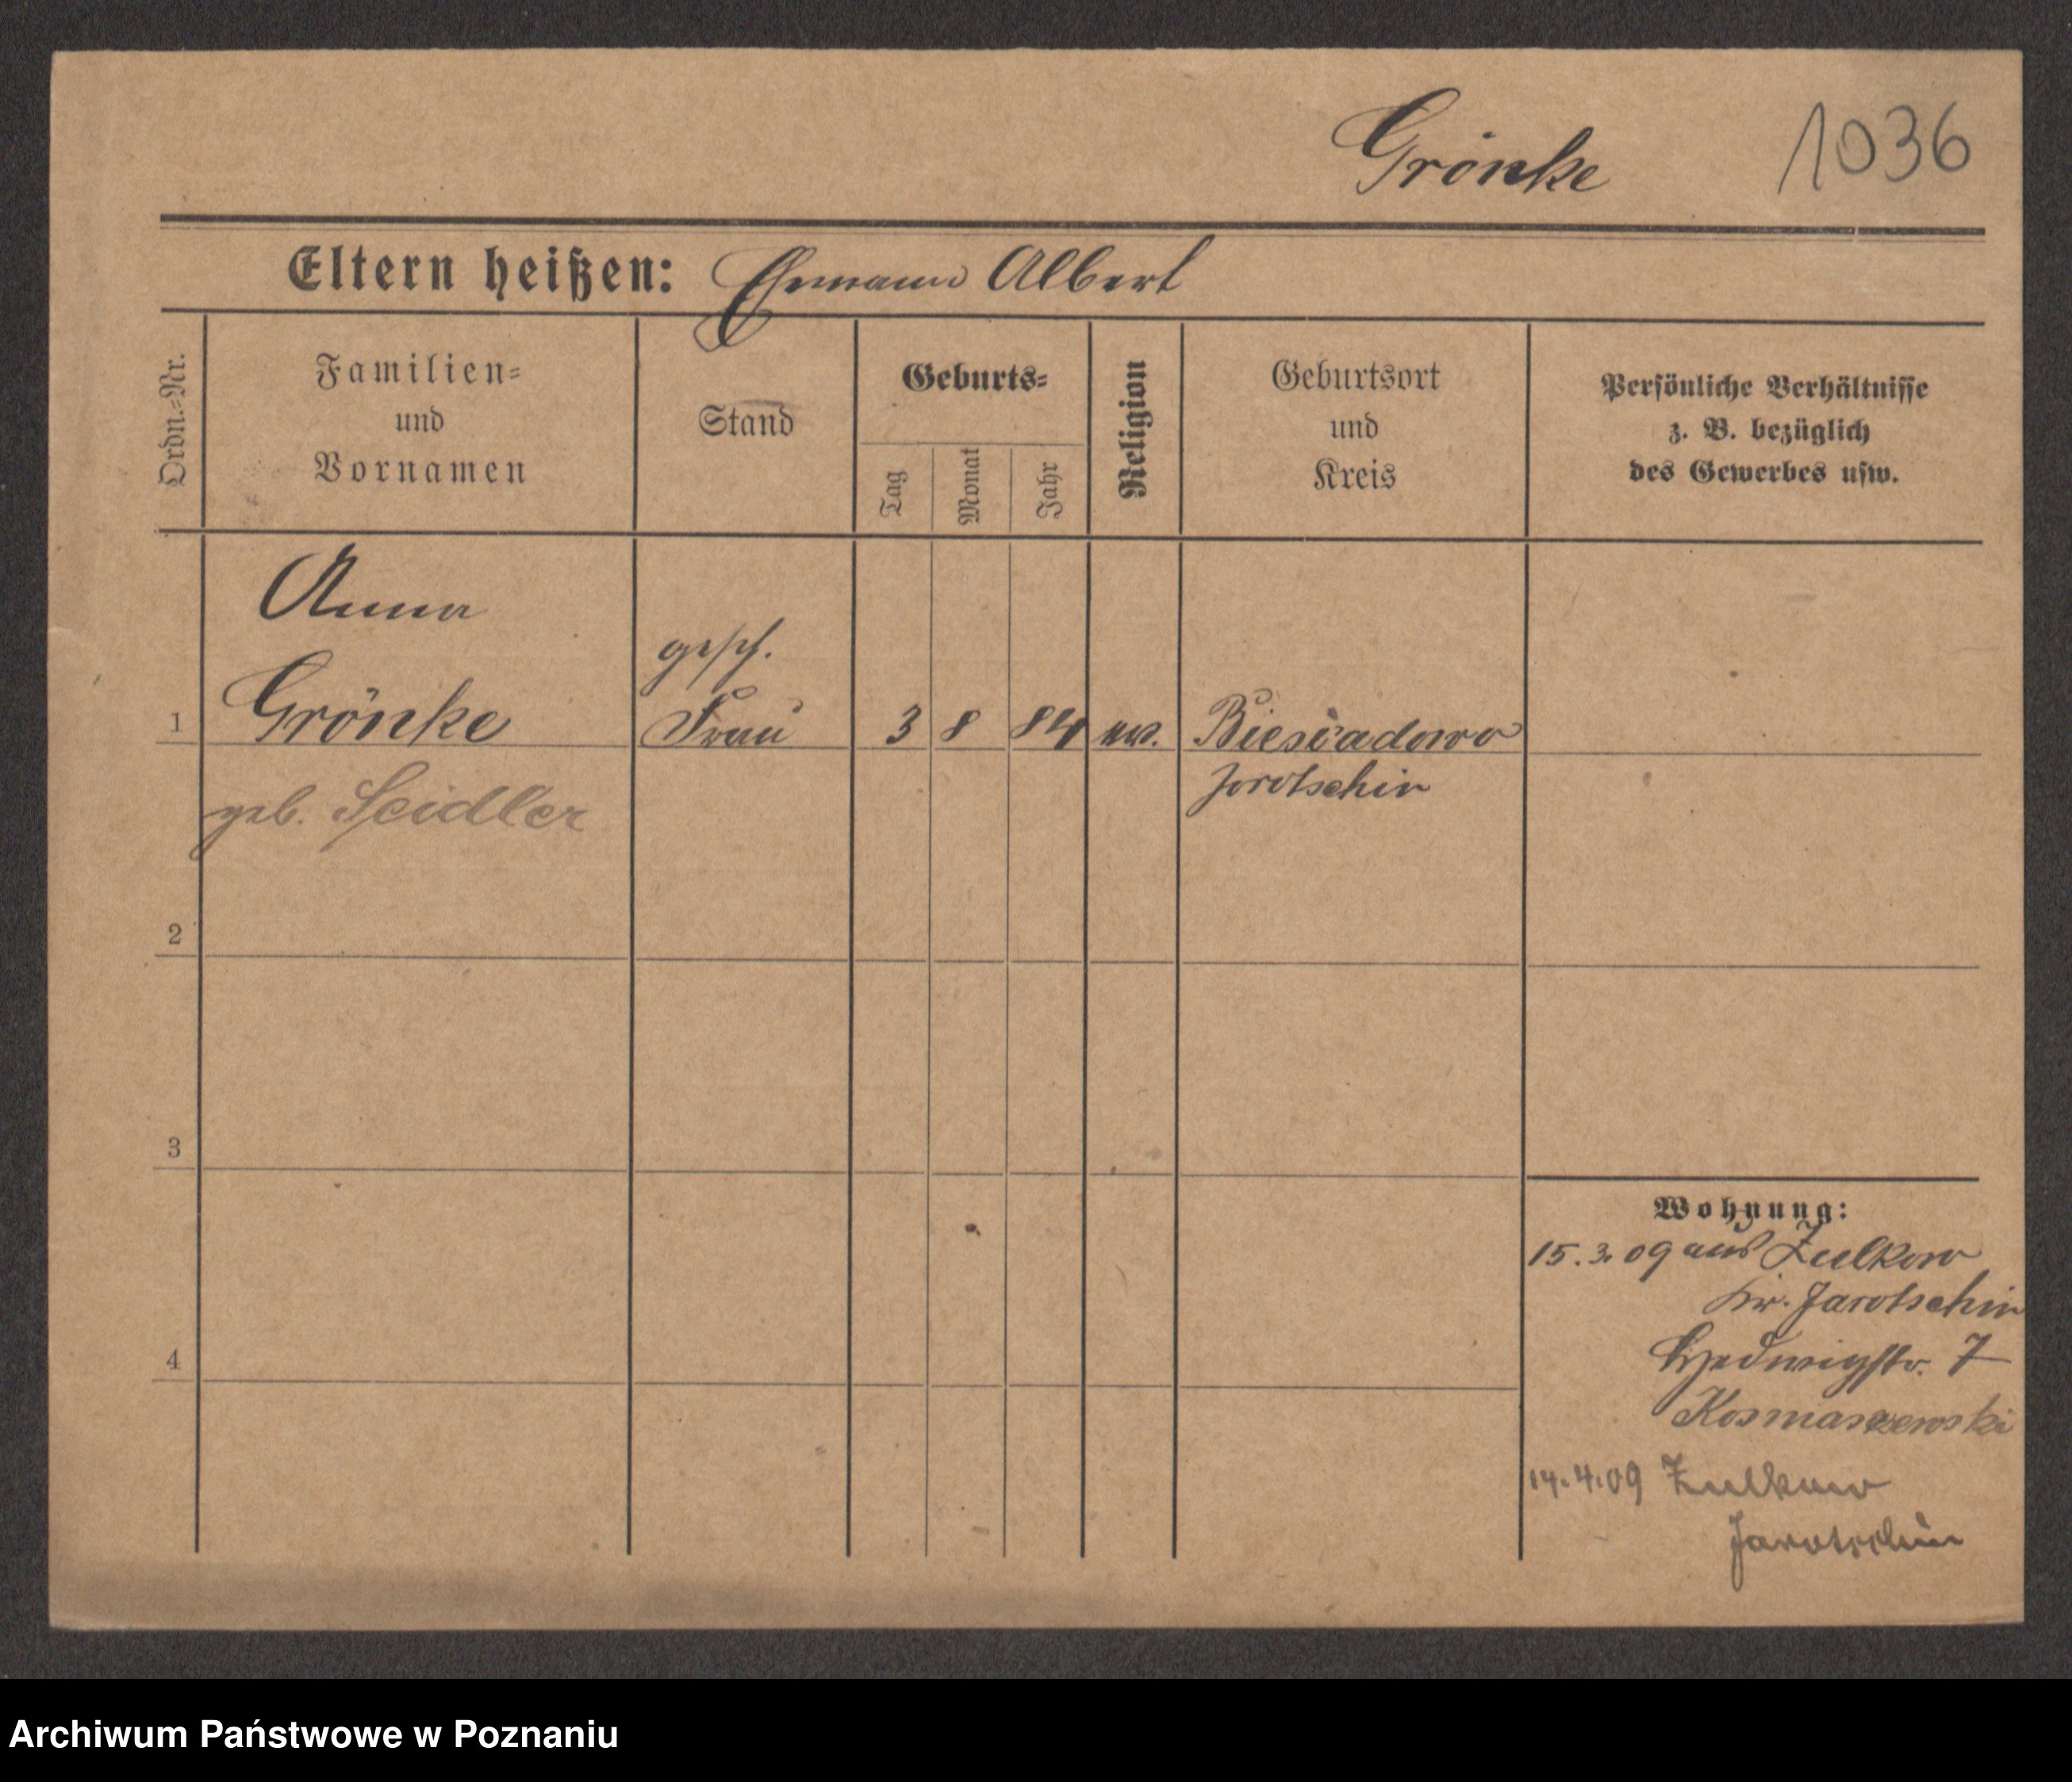 Grönke 1036
Eltern heißen: Ehemann Albert
Ordn.-Nr.
Familien-
und
Vornamen
Stand
Geburts-
Tag
Monat
Jahr
Religion
Geburtsort
und
Kreis
Persönliche Verhältnisse
z. B. bezüglich
des Gewerbes usw.
Anna
gesch.
1 Grönke Frau 3 8 84 ev. Biesiadowo
geb. Seidler Jarotschin
2
3
4
Wohnung:
15.3.09 aus Zulkow
Kr. Jarotschin
Hedwigstr. 7
Kosmaszewski
14.4.09 Zulkow
Jarotschin
Archiwum Państwowe w Poznaniu